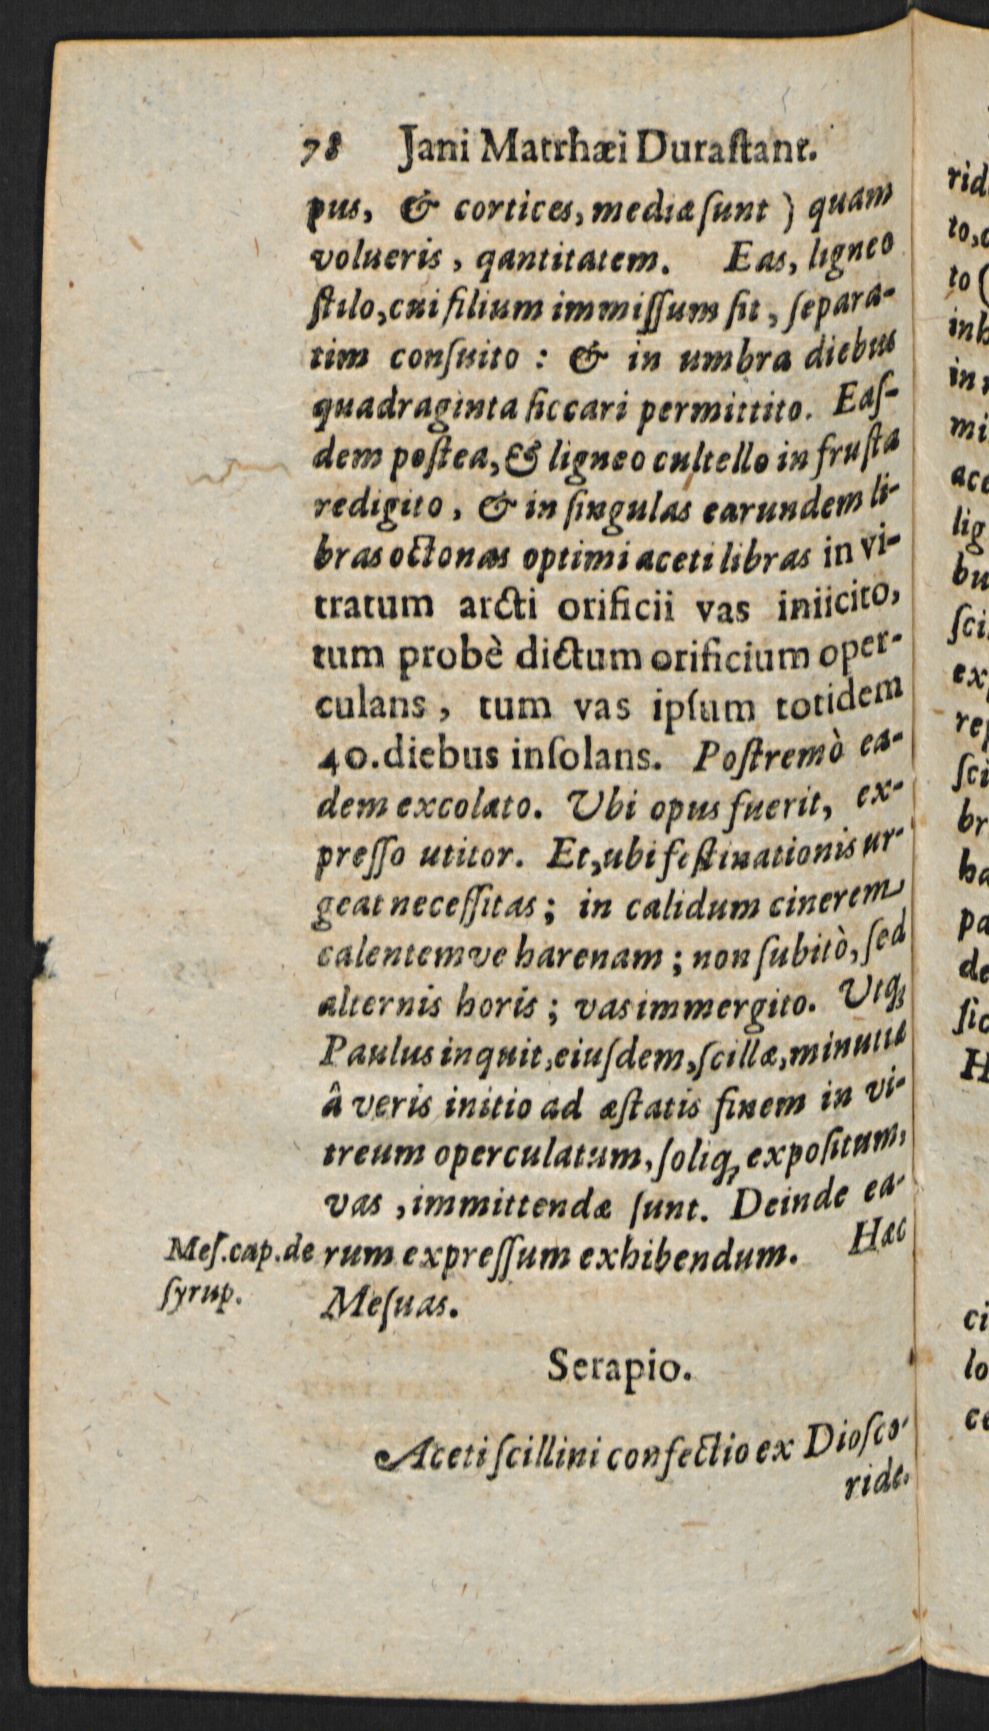 78 Jani Matthæi Durastant.
pus, & cortices, mediæ sunt) quam
volueris, qantitatem. Eas, ligneo
stilo, cui filium immissum sit, separa-
tim consuito: & in umbra diebus
quadraginta siccari permittito. Eas-
dem postea, & ligneo cultello in frusta
redigito, & in singulas earundem li-
bras octonas optimi aceti libras in vi-
tratum arcti orificii vas iniicito,
tum probè dictum orificium oper-
culans, tum vas ipsum totidem
40. diebus insolans. Postremò ea-
dem excolato. Ubi opus fuerit, ex-
presso utitor. Et, ubi festinationis ur-
geat necessitas; in calidum cinerem
calentemve harenam; non subitò, sed
alternis horis; vas immergito. Utq;
Paulus inquit, eiusdem, scillæ, minutiæ
â veris initio ad æstatis finem in vi-
treum operculatum, soliq; expositum,
vas, immittendæ sunt. Deinde ea-
Mes. cap. de rum expressum exhibendum. Hæc
syrup. Mesuas.
Serapio.
Aceti scillini confectio ex Diosco-
ride.
rid
to, c
to (
inh
in
mi
ace
lig
bu
sci
ex
rep
sci
br
ha
pa
de
sic
H
ci
lo
ce